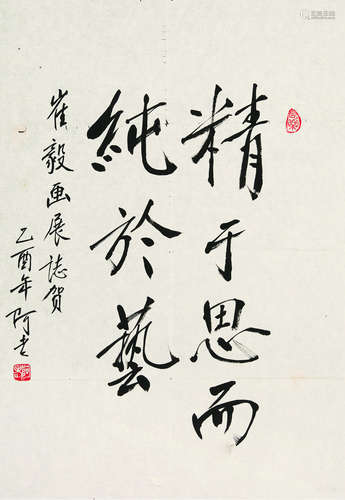 精于思而
純於藝
崔毅画展誌贺
乙酉年阿老